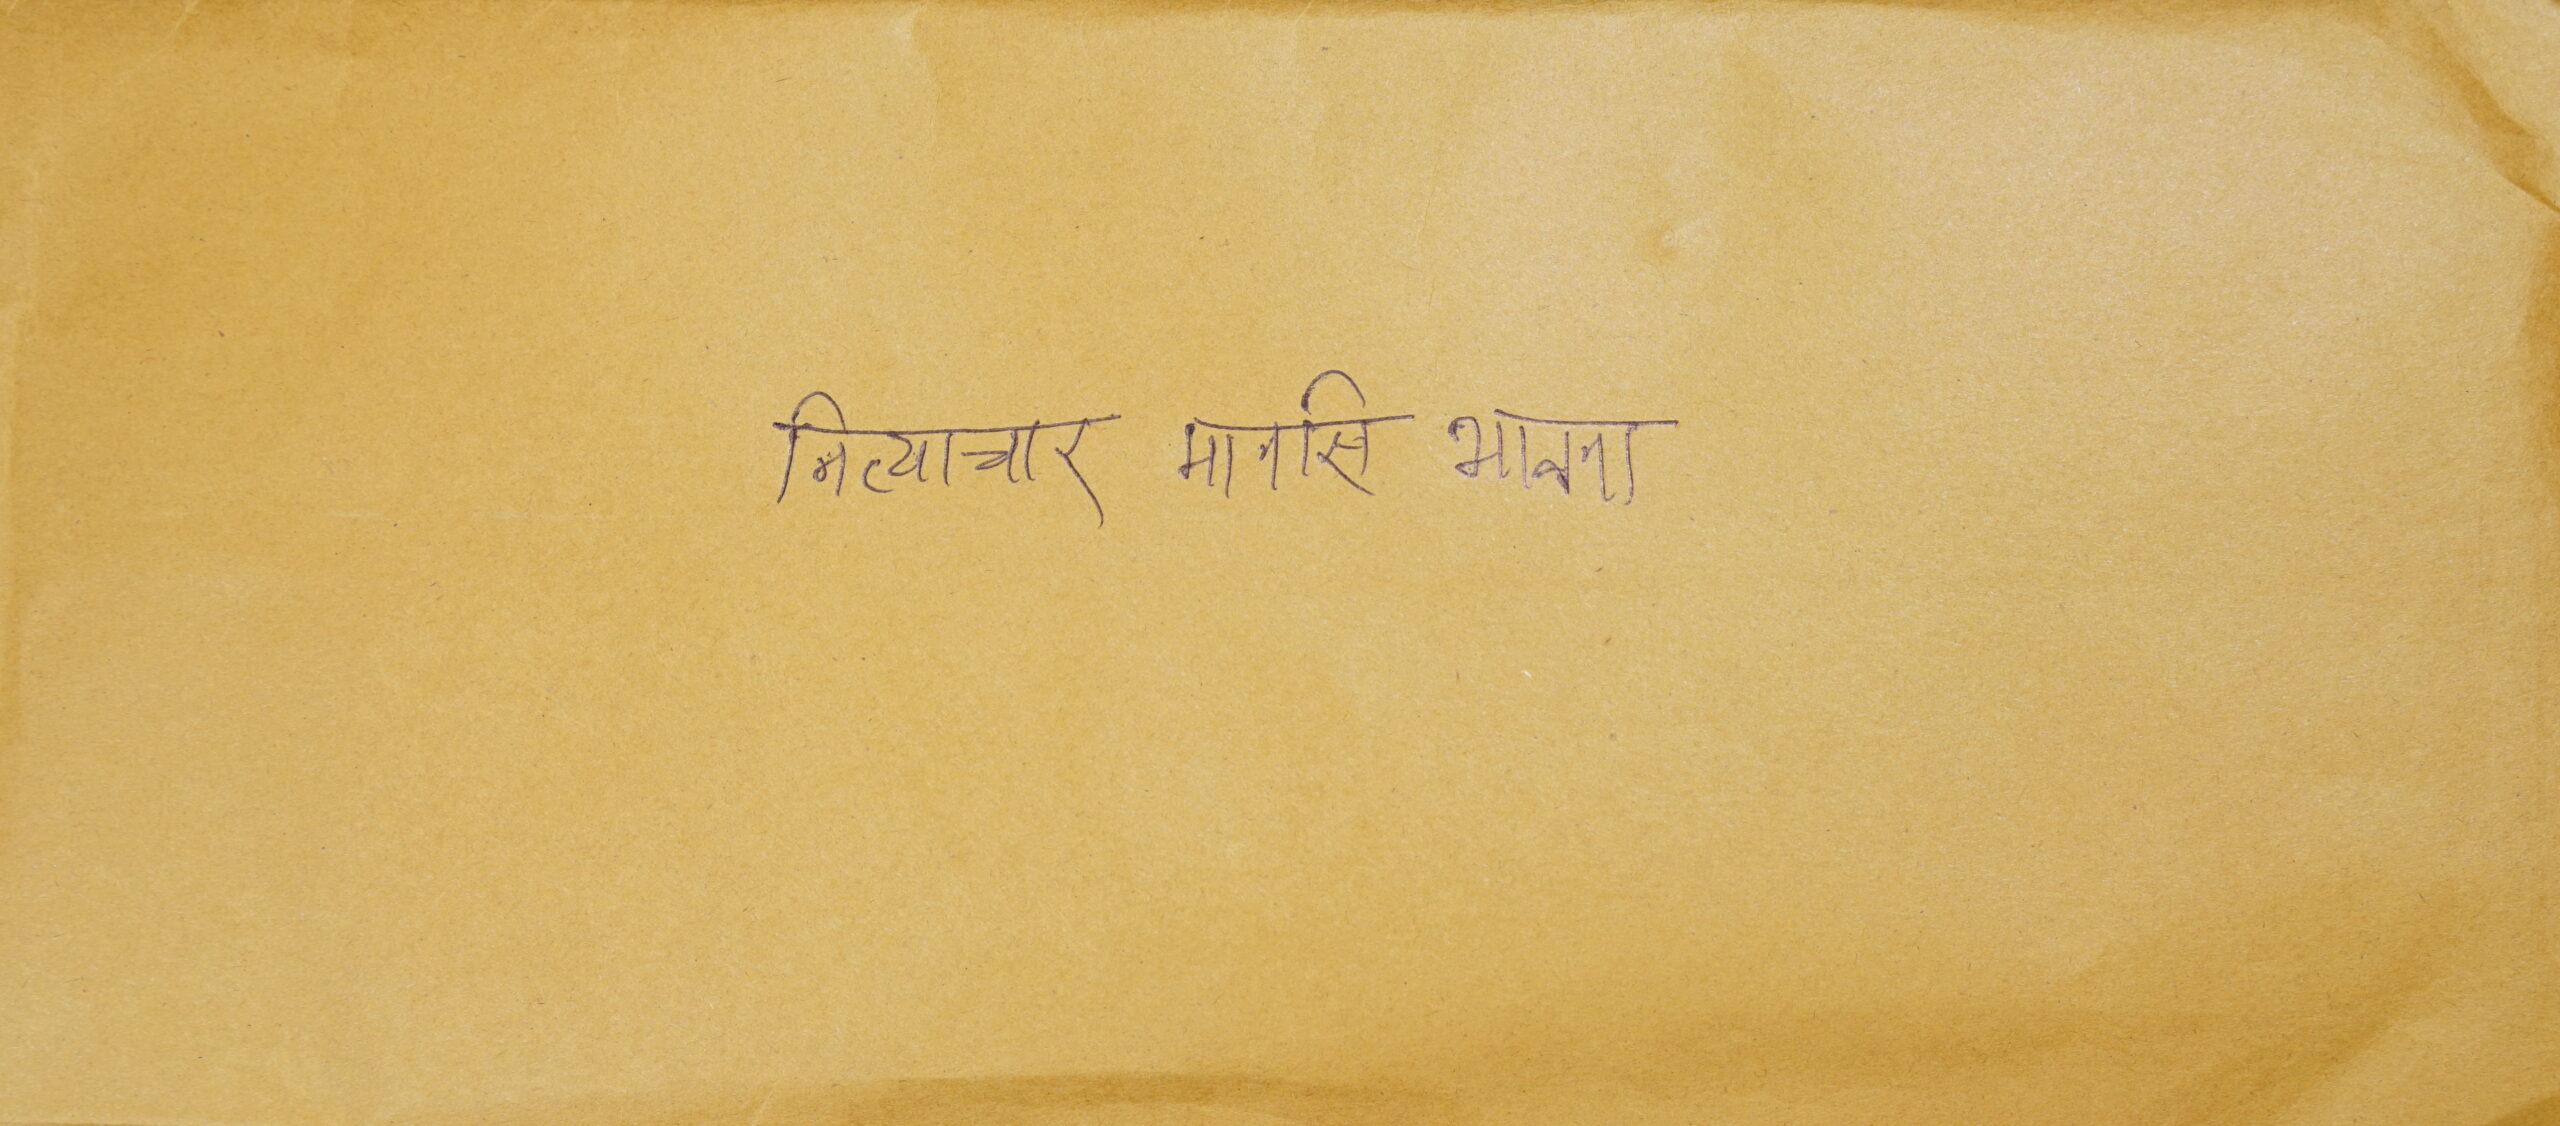 नित्याचार मानसि भावना